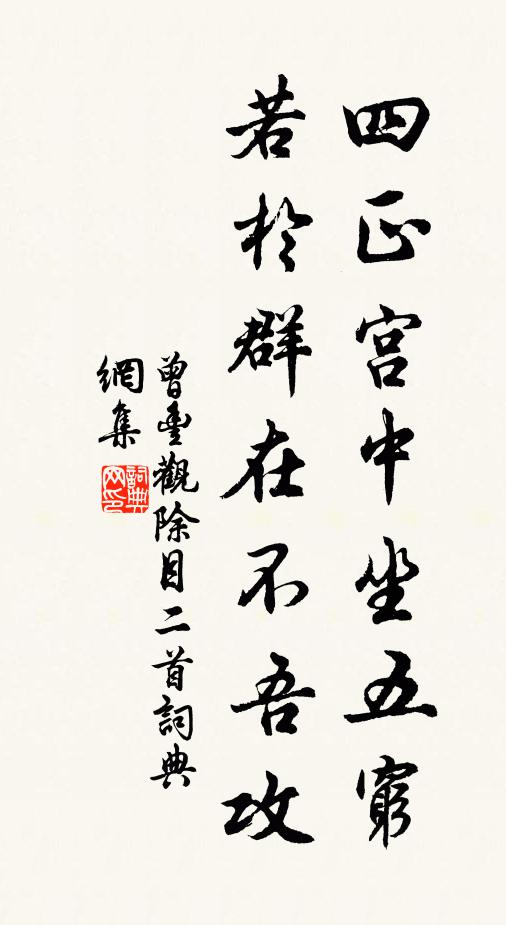 四正宮中坐五窮
若於群在不吾攻
曾豐觀除目二首詞典
網集
詞典網印